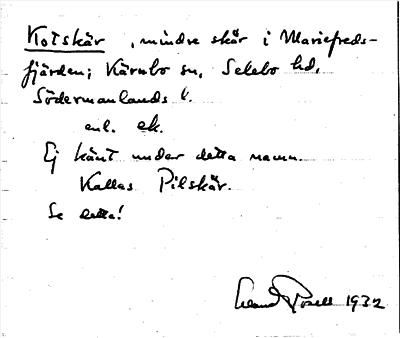 Kotskär, mindre skär i Mariefreds-
fjärden; Kärnbo sn, Selebo hd,
Södermanlands l.
enl. ek.
Ej känt under detta namn.
Kallas Pilskär.
Se detta!
1932